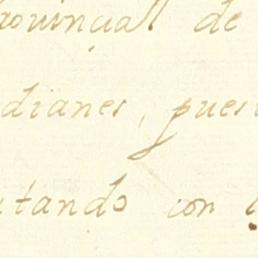 rovincial de
dianes, pues
tando con